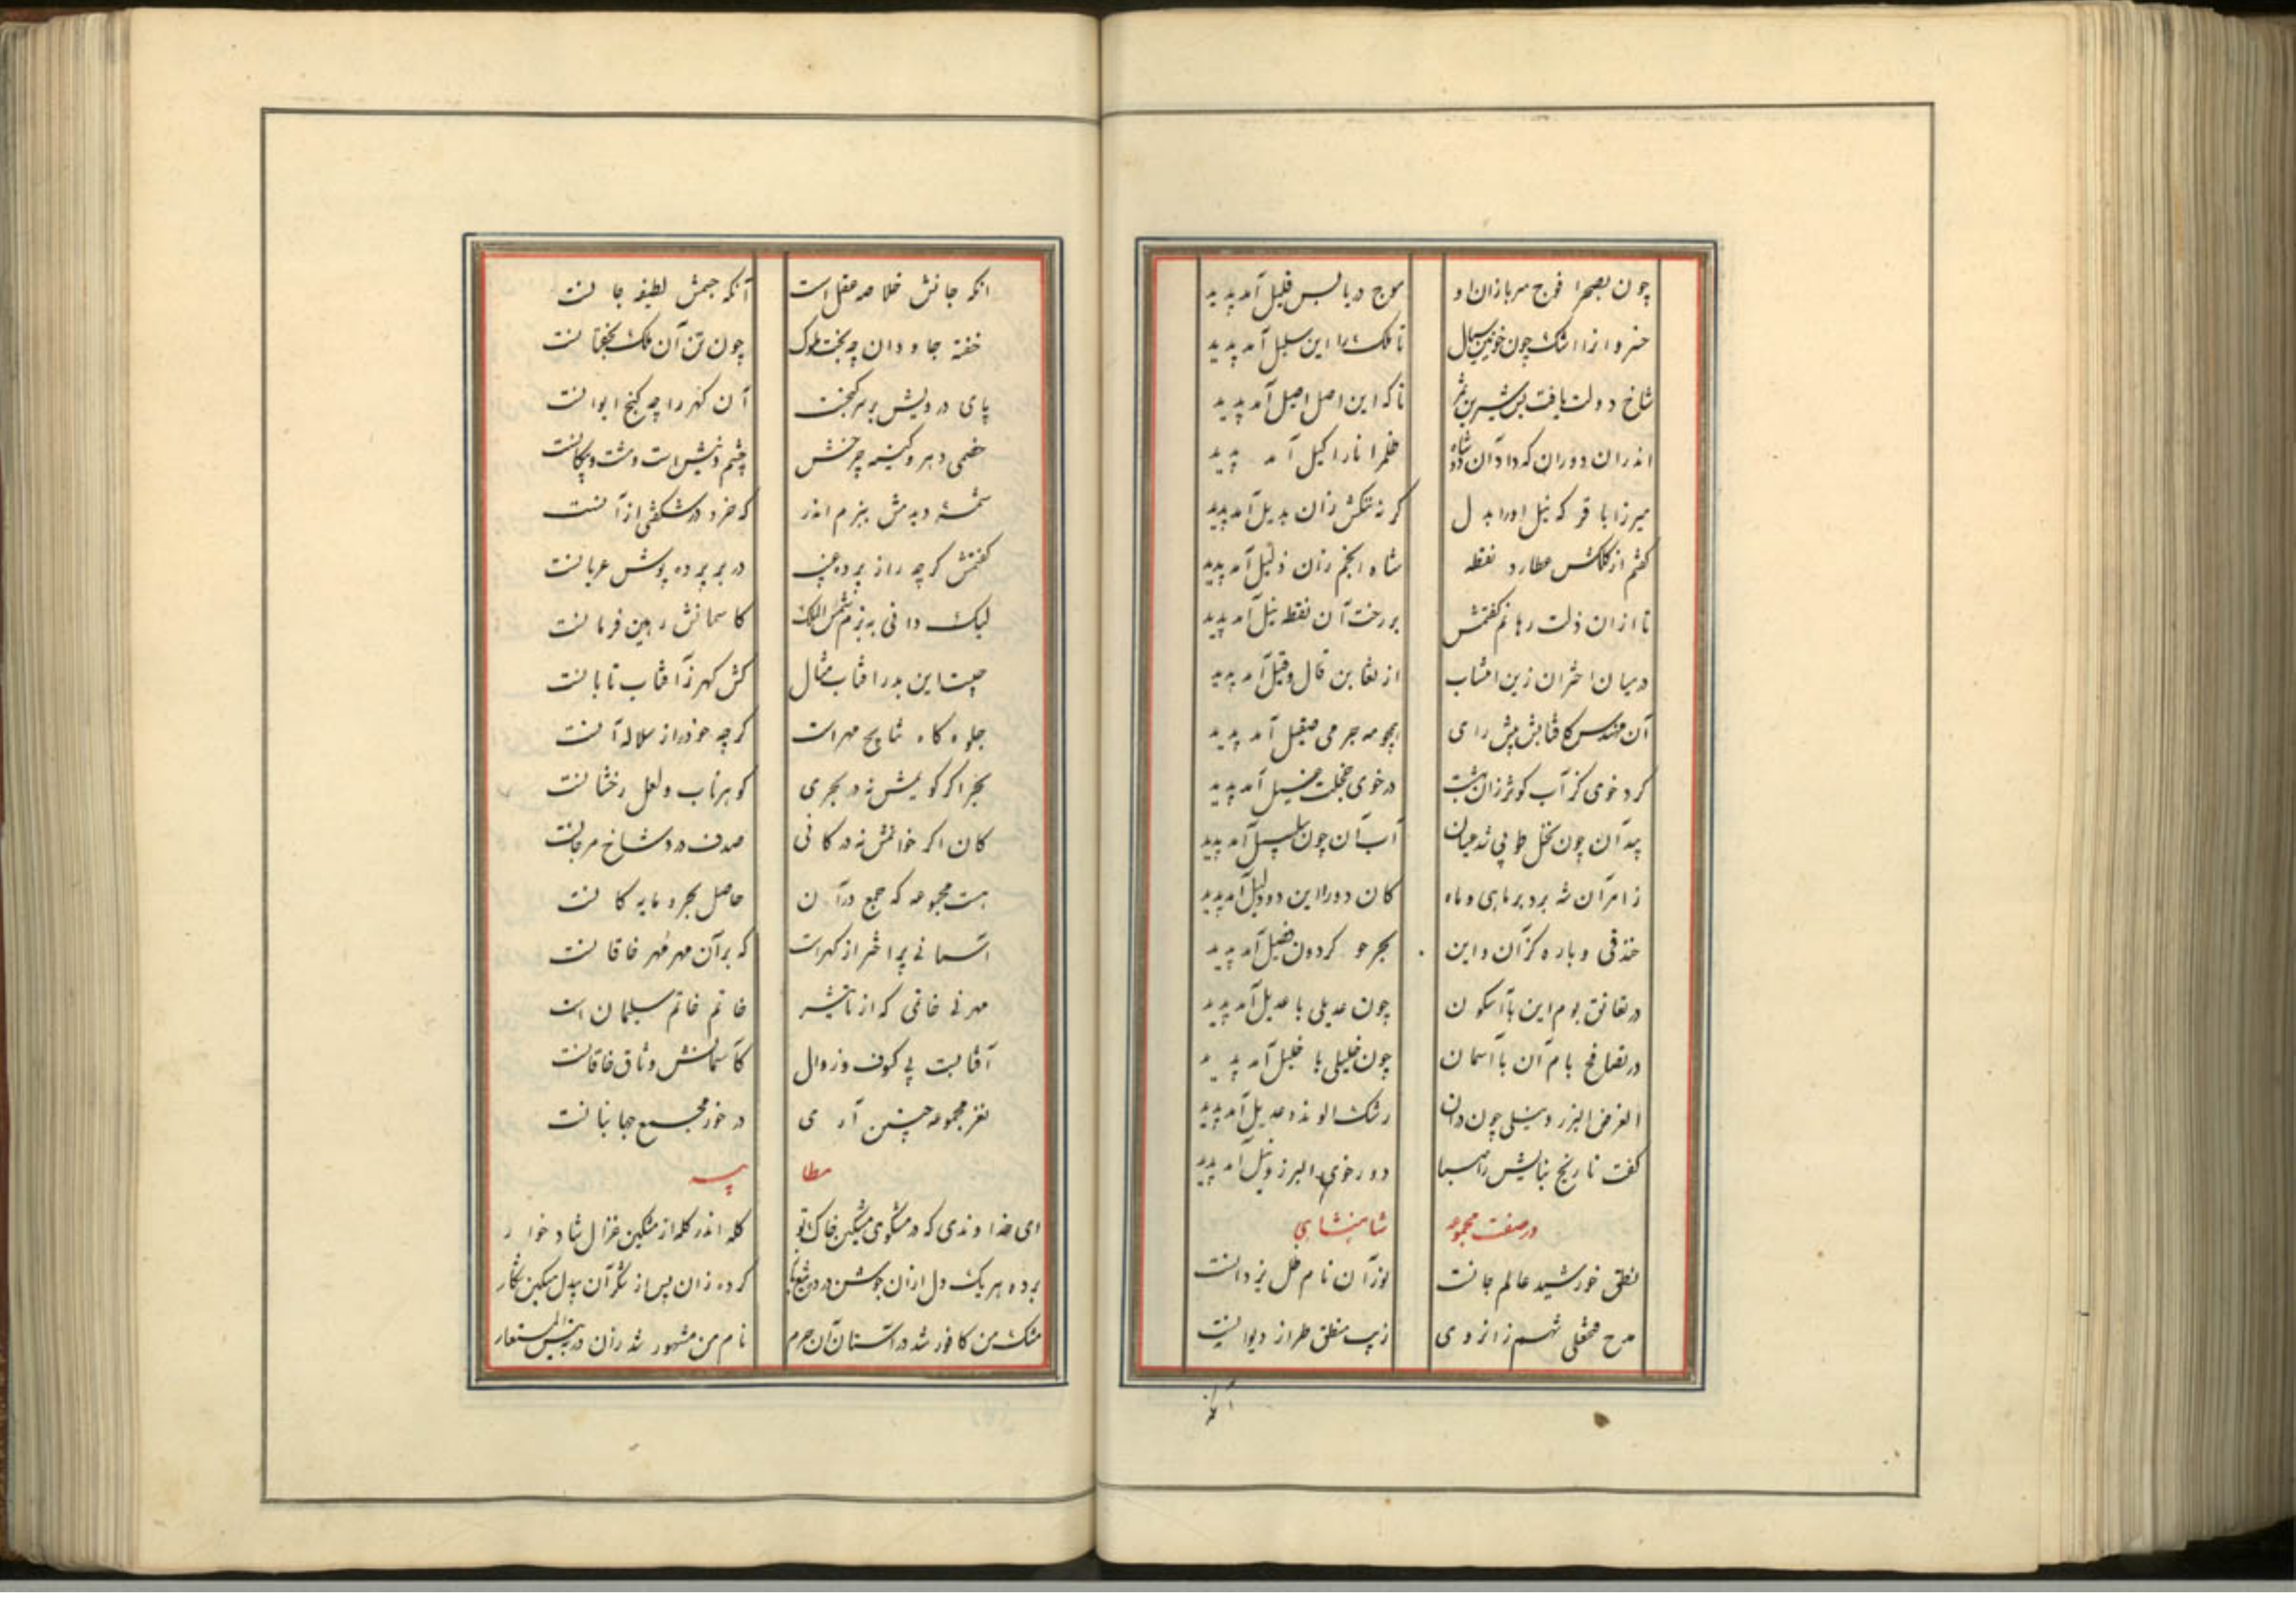 چون بصحرا فوج سربازان او موج دریا بس قلیل آمد پدید
خسروا زا اشک چون خونین سیال تا فلک را این سبیل آمد پدید
شاخ دولت یافت بس شیرین ثمر تا که این اصل اصیل آمد پدید
اندران دوران که داد آن شاه ظفرا نارا کیل آمد پدید
میرزا باقر که نیل اورا بدل کر نه تنکش زان بدیل آمد پدید
کفتم از کلکش عطارد نقطه شاه انجم زان ذلیل آمد پدید
تا ازان ذلت رهانم کفتمش بر رخت آن نقطه نیل آمد پدید
درمیان اختران زین انتساب از تغابن قال و قیل آمد پدید
آن مهندس کافتابش پیش رای همچو مه جرمی صقیل آمد پدید
کرد خوی کز آب کوثر زان بهشت در خوی خجلت غسیل آمد پدید
بید آن چون نخل طوبی شد عیان آب آن چون سلسبیل آمد پدید
ز امر آن شه برد بر ماهی و ماه کان دورا این دو دلیل آمد پدید
خندقی و باره کز آن و این بحر و کردون آمد پدید
در تعانق بوم این با آسکون چون عدیلی با عدیل آمد پدید
در تصافح بام آن با آسمان چون خلیلی با خلیل آمد پدید
الغرض البرز و نیلی چون رشک الوند و آمد پدید
کفت تاریخ بنایش را صبا دور خوی البرز و نیل آمد پدید
در صفت مجموعه شاهنشاهی
نطق خورشید عالم جانست نور آن نام ظل یزدانست
مدح فتحعلی شهم ز انروی زیب منطق طراز دیوانست
آنکه
آنکه جانش خلاصه عقل است آنکه جسمش لطیفه جانست
خفته جاودان چه بخت ملوک چون تن آن ملک بخفتانست
پای درویش بر سر کنجست آن کهر را چه کنج ایوانست
خصمی دهر و کینه چرخش چشم و نیش است و مشت و پیکانست
شمسه دیدمش ببزم اندر که خرد در شکفتی از آنست
کفتمش کرچه راز پرده غیب در بر پرده پوش عریانست
لیک دانی به بزم شمس الملک کاسمانش رهین فرمانست
چیست این بدر افتاب مثال کش کهر ز آفتاب تابانست
جلوه کاه نتایج مهر است کرچه خود از سلاله آنست
بحر اکر کویمش نه در بحری کوهر ناب و لعل رخشانست
کان اکر خوانمش نه در کانی صدف در و شاخ مرجانست
هست مجموعه که جمع در آن حاصل بحر و مایه کانست
آسمانی پر اختر از کهر است که بر آن مهر مهر خاقانست
مهر نی خاتمی که از تاثیر خاتم خاتم سلیمان است
آفتابست بی کسوف و زوال کاسمانش وثاق خاقانست
نغز مجموعه چنین آری در خور مجمع جهانبانست
مطایبه
ای خداوندی که در مشکوی مشکین خاک تو کله اندر کله از مشکین غزال شاد خوار
برده هر یک دل ازان کرده زان پس از مشکر آن بیدل مسکین نکار
مشک من کافور شد در آستان آن حرم نام من مشهور شد زان در بئیس المستعار